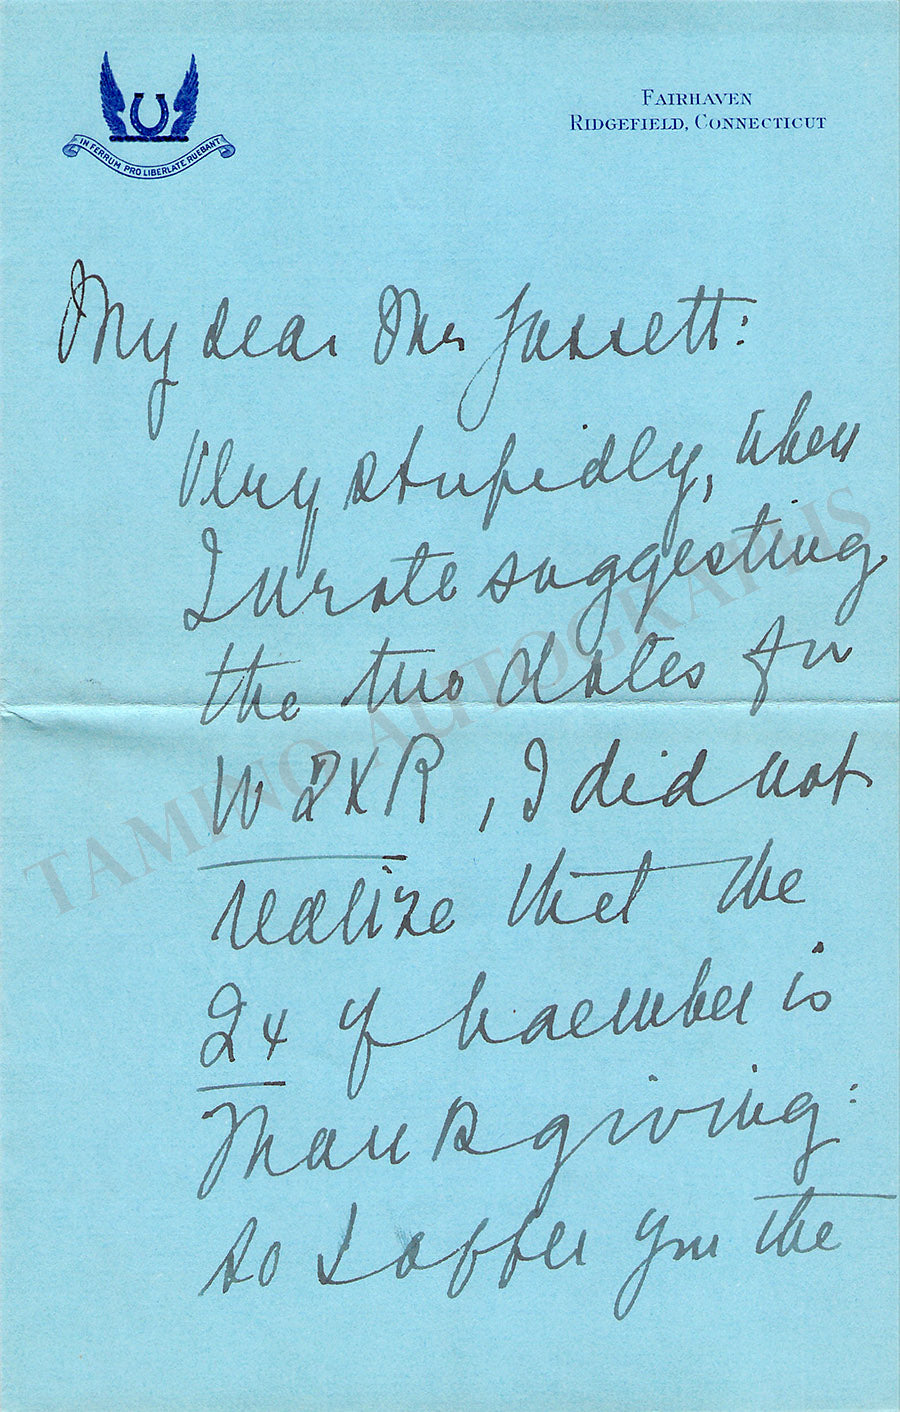 IN FERRUM PRO LIBERLATE RUEBANT
FAIRHAVEN
RIDGEFIELD, CONNECTICUT
My dear Mr Jassett:
Very stupidly, when
I wrote suggesting
the two dates for
W2XR, I did not
realize that the
24 of November is
Thanksgiving:
so I offer you the
TAMINO AUTOGRAPHS